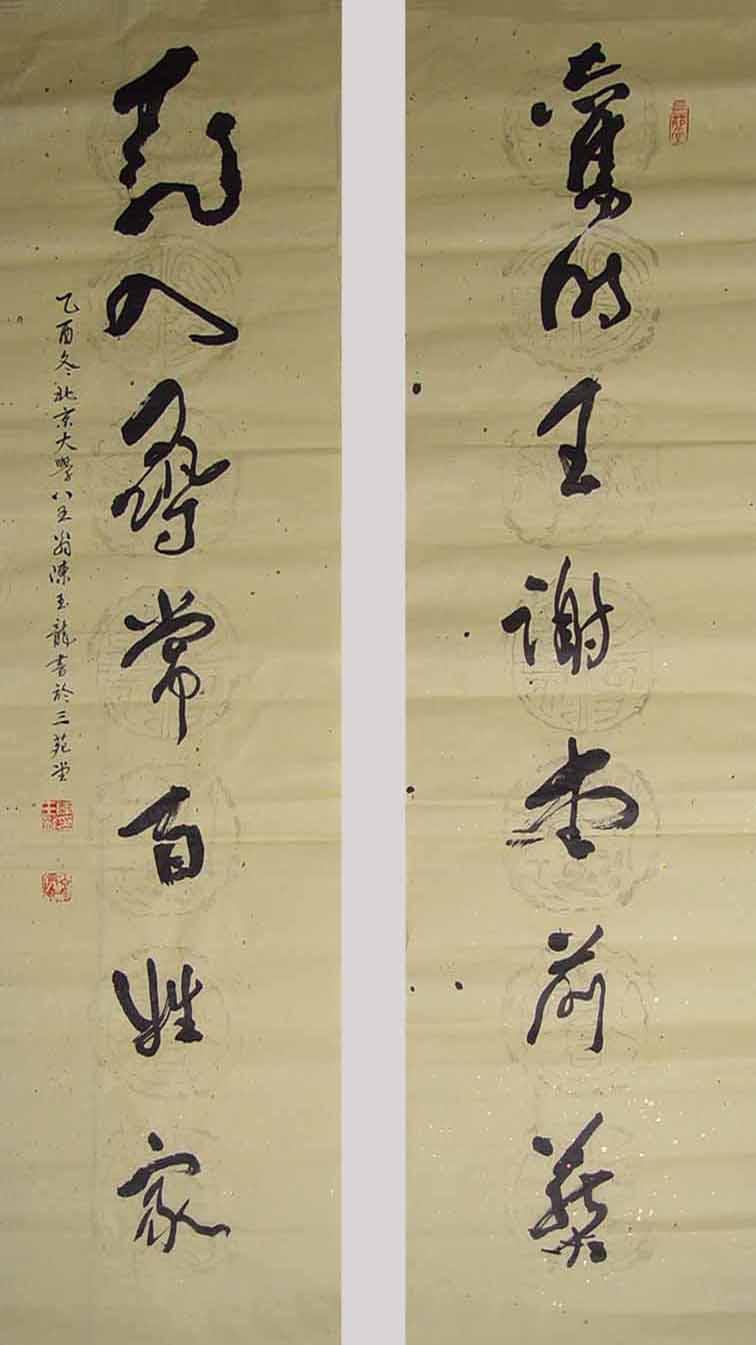 舊時王謝堂前燕
飛入尋常百姓家
乙酉冬北京大學八五翁陳玉龍書於三苑堂